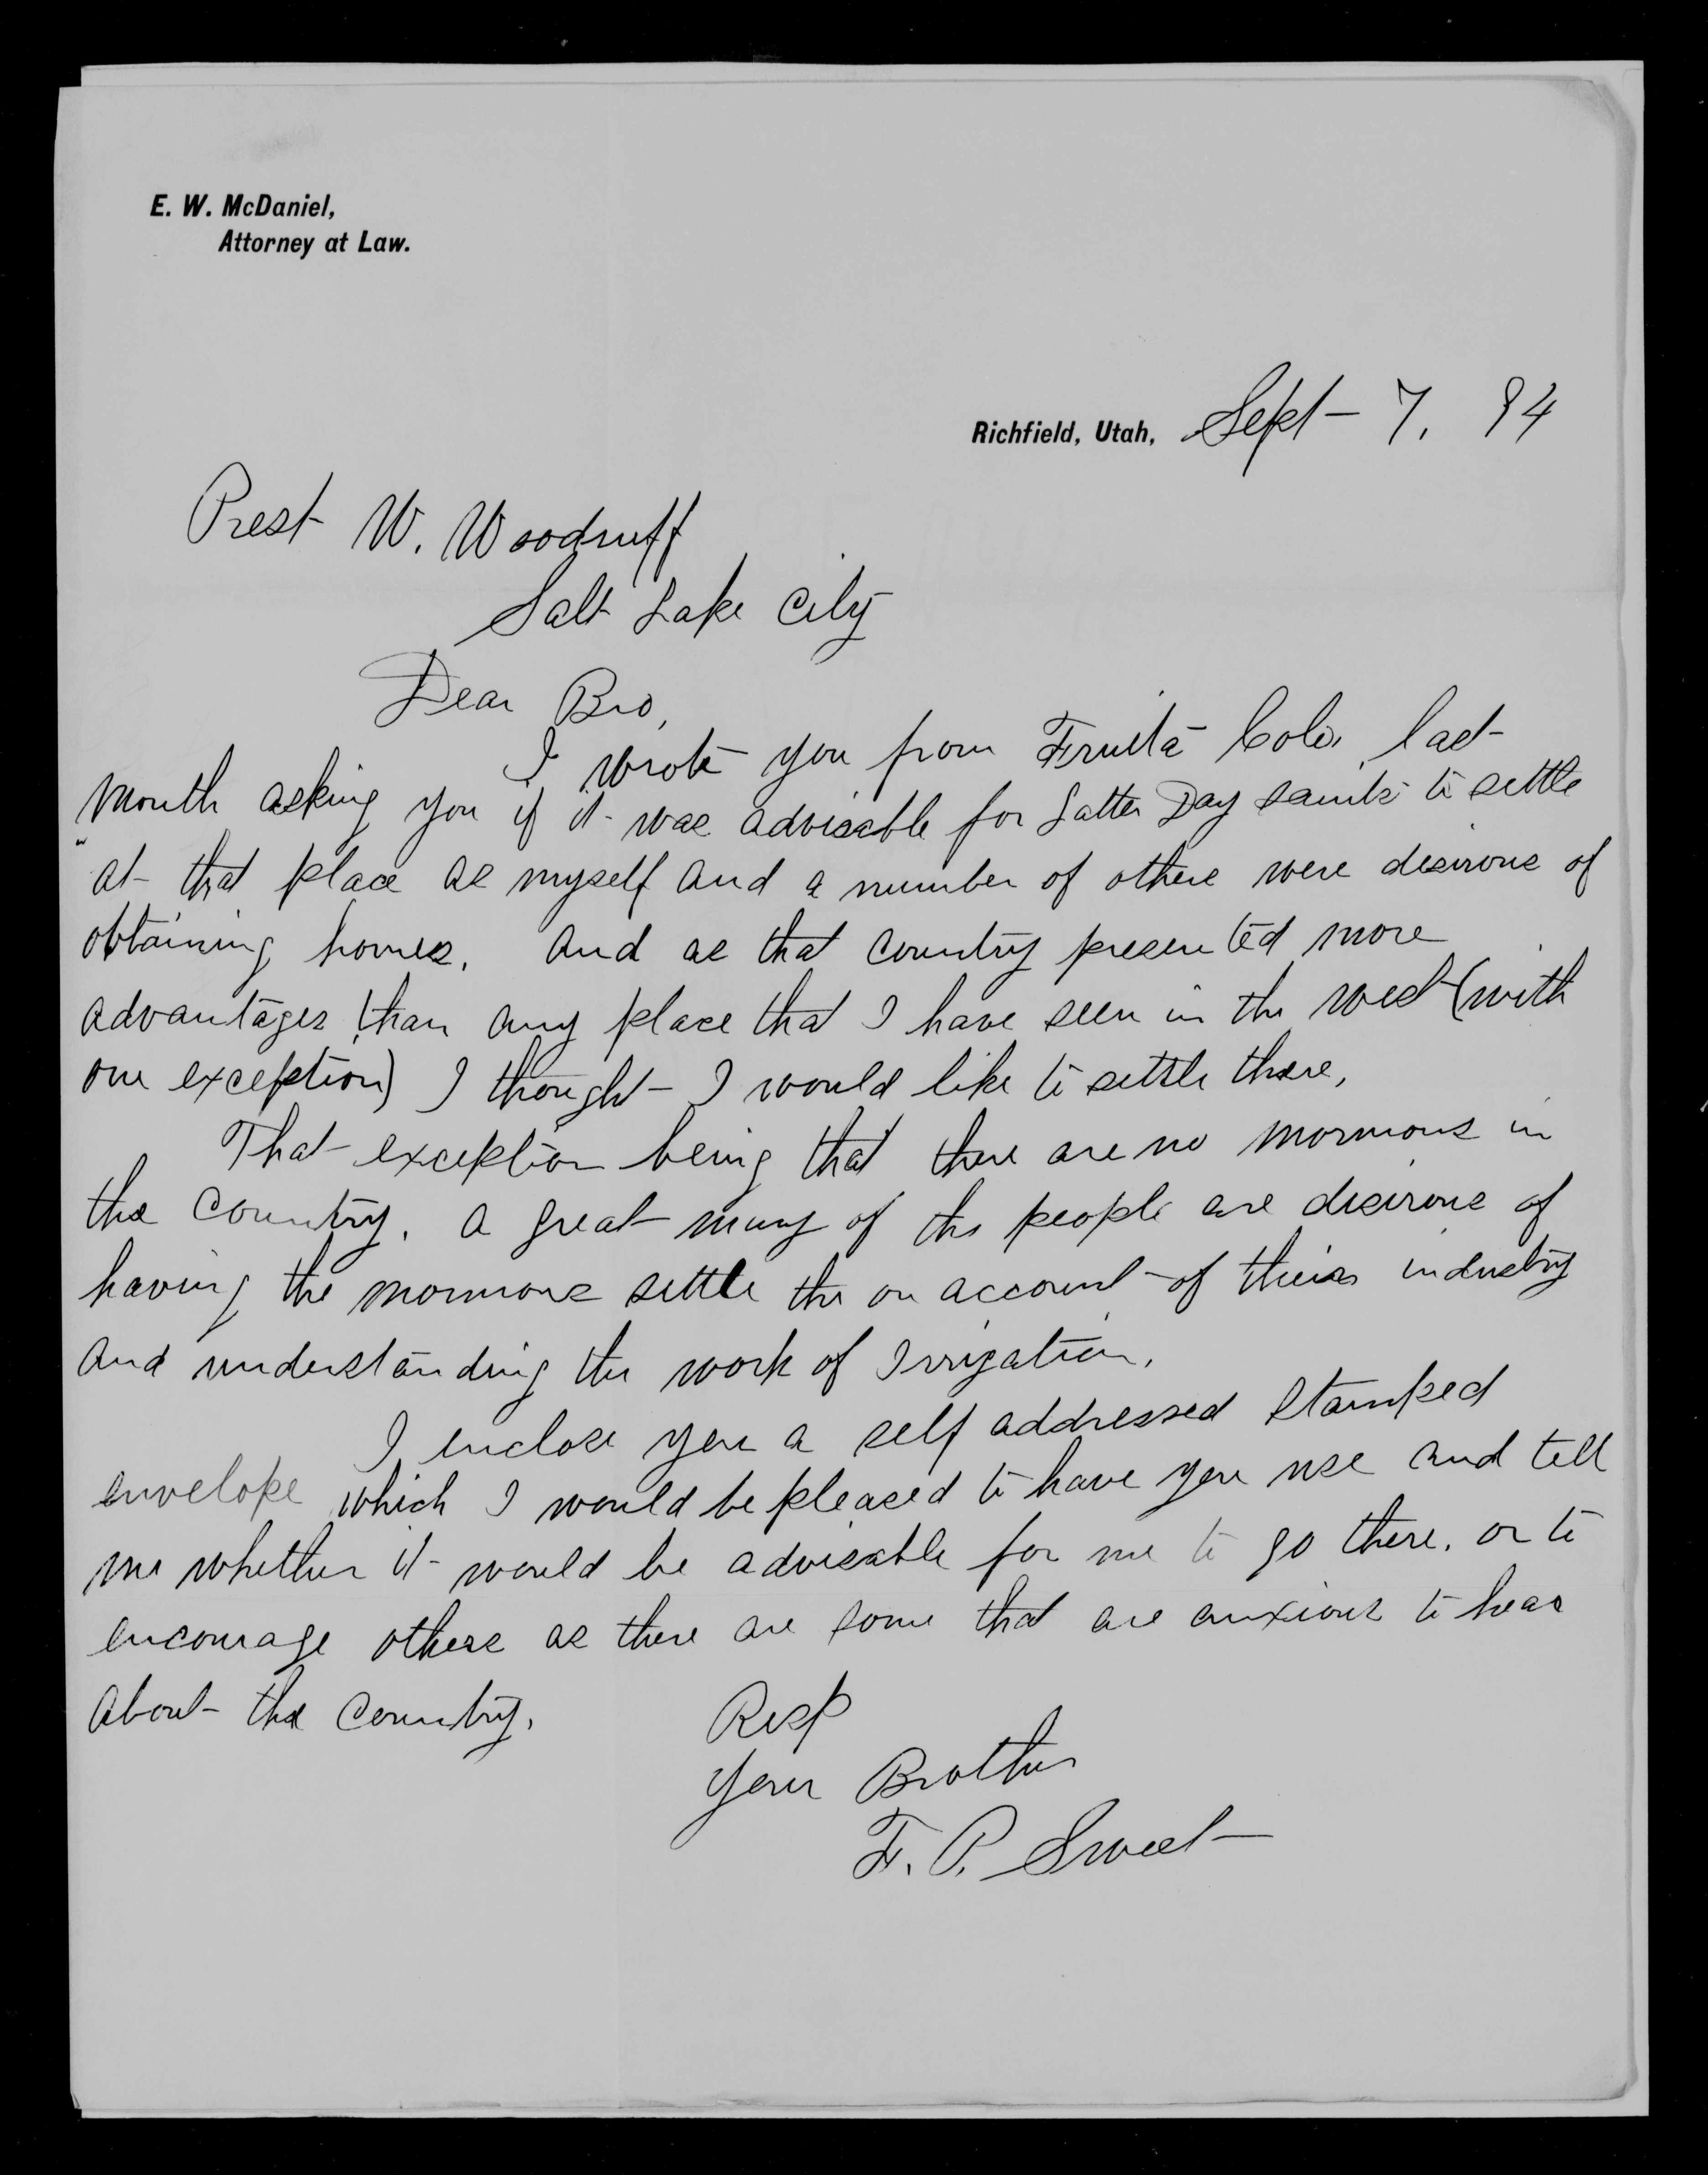 E. W. McDaniel,
Attorney at Law.
Richfield, Utah, Sept 7, 94
Prest W. Woodruff
Salt Lake City
Dear Bro,
I wrote you from Fruita Colo, last
month asking you if it was advisable for Latter Day saints to settle
at that place as myself and a number of others were desirous of
obtaining homes. And as that country presented more
advantages than any place that I have seen in the west (with
one exception) I thought I would like to settle there,
That exception being that there are no mormons in
the country. A great many of the people are desirous of
having the mormons settle the on account of their industry
and understanding the work of Irrigation.
I enclose you a self addressed stamped
envelope which I would be pleased to have you use and tell
me whether it would be advisable for me to go there, or to
encourage others as there are some that are anxious to hear
about the country.
Resp
Your Brother
F. P. Sweet